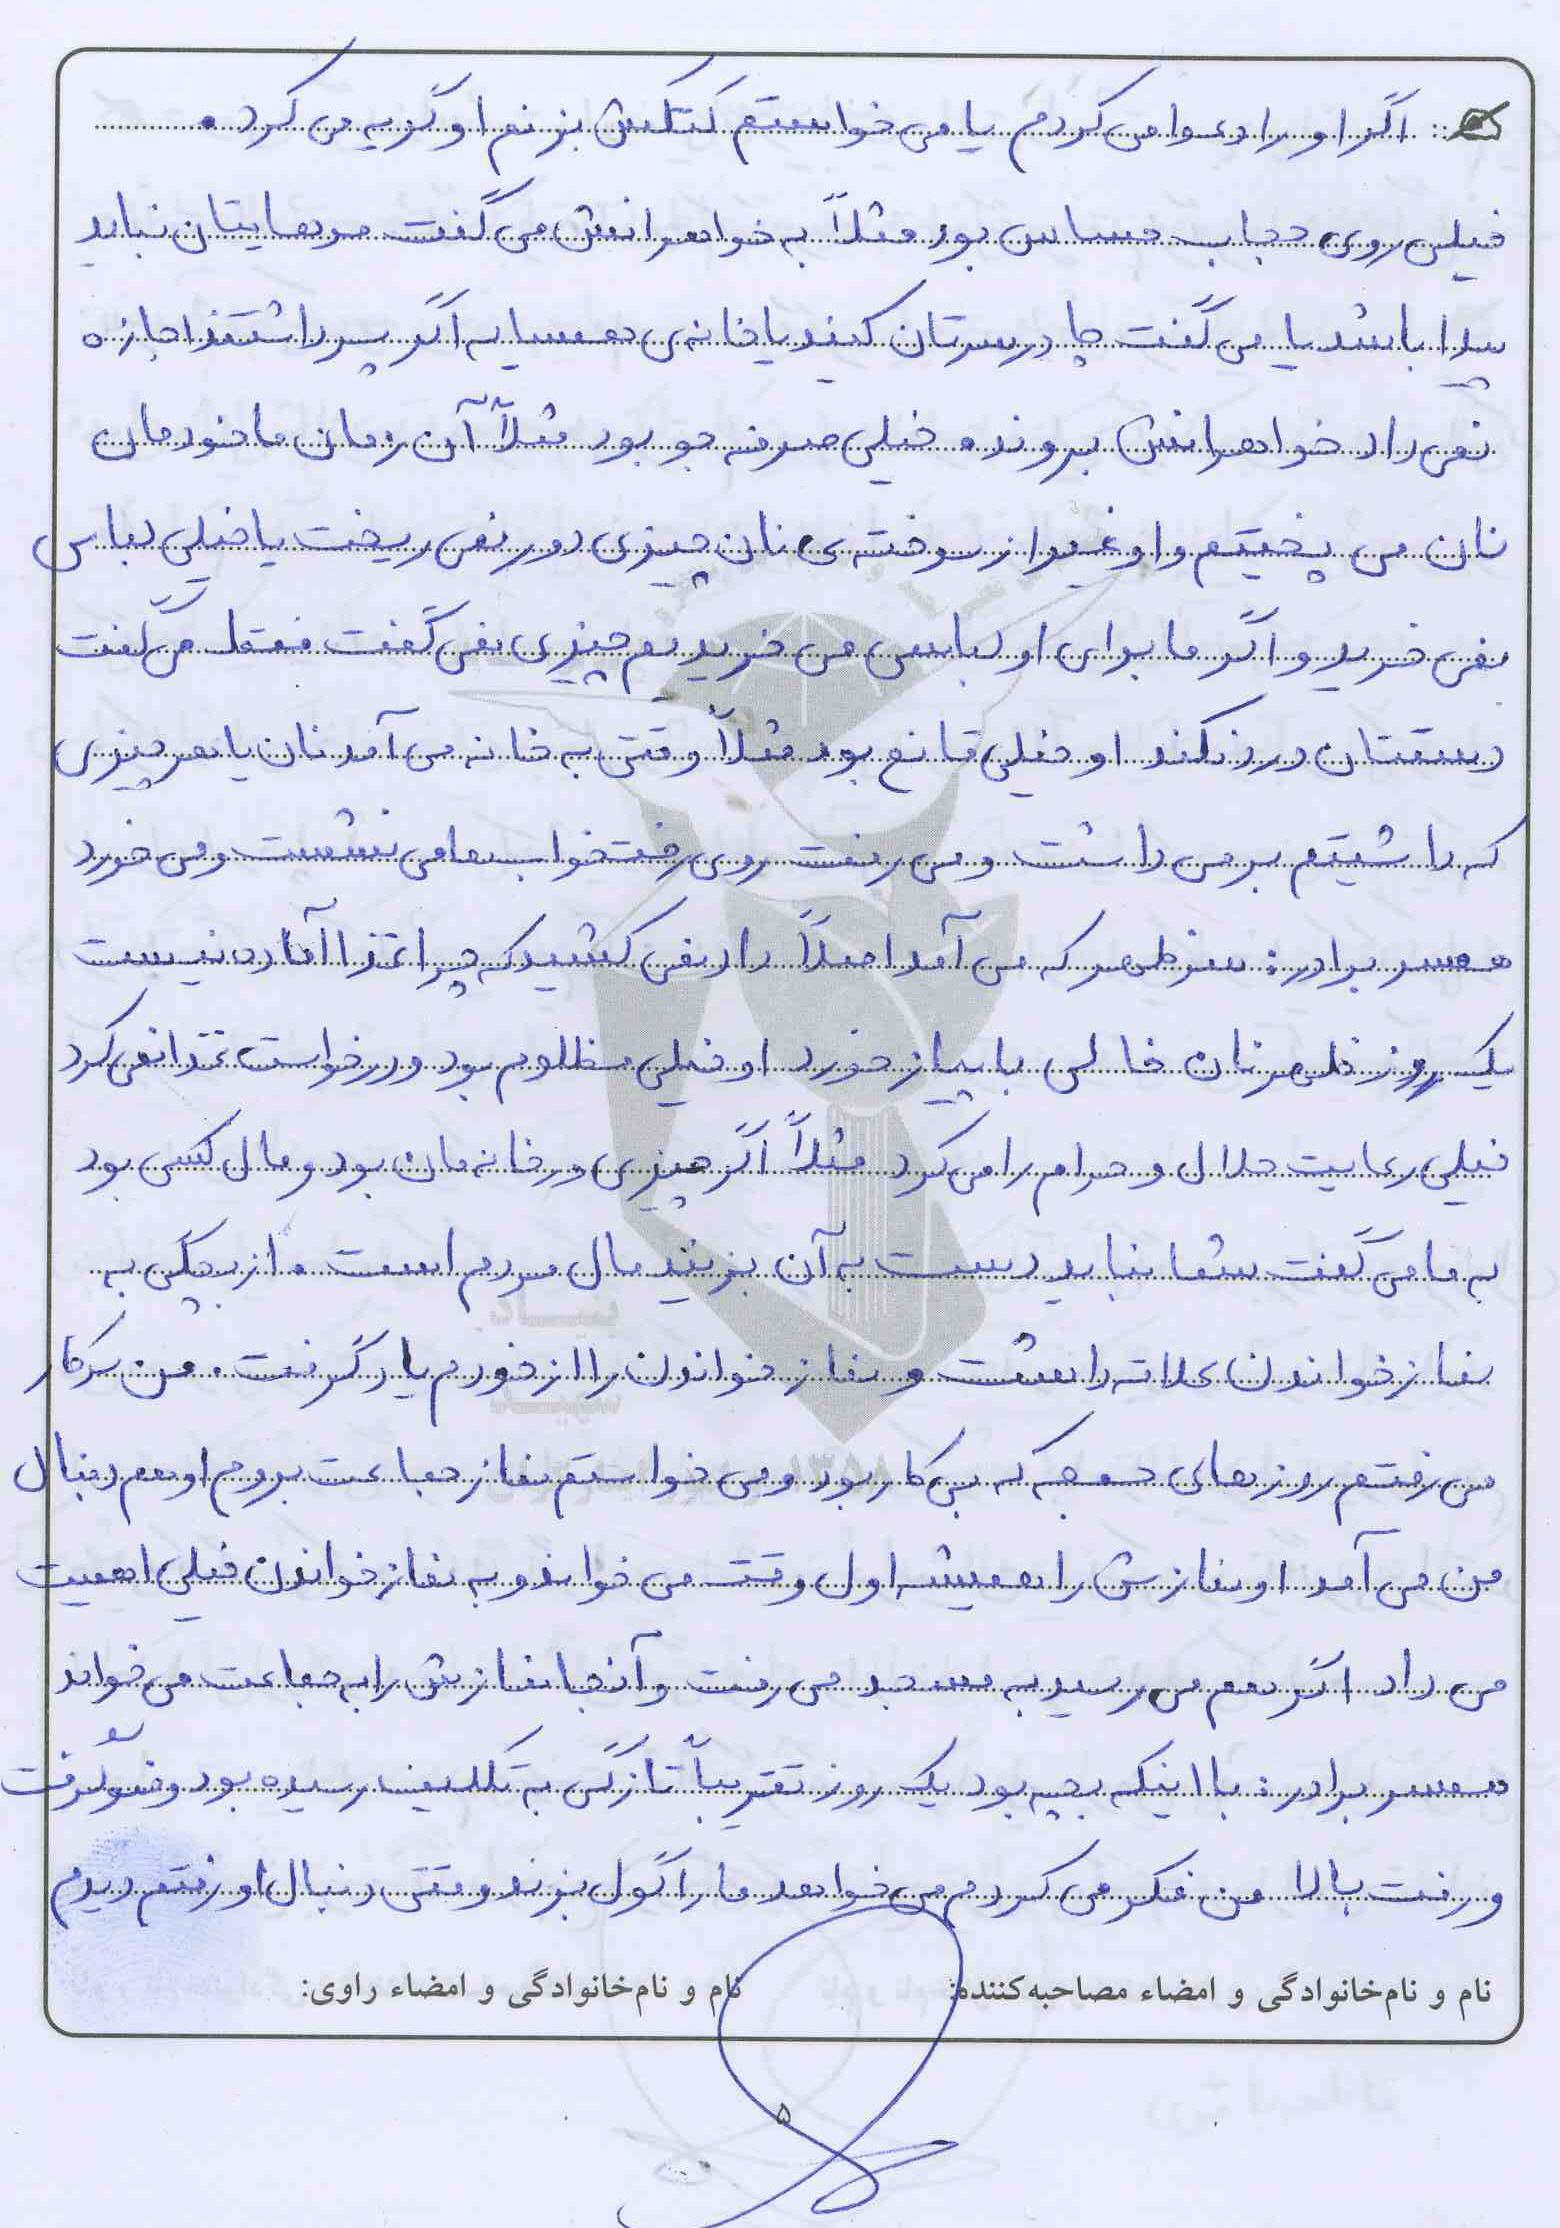 اگر او را دعوا می کردم یا می خواستم کتکش بزنم او گریه می کرد.
خیلی روی حجاب حساس بود مثلاً به خواهرانش می گفت موهایتان نباید
پیدا باشد یا می گفت چادر سرتان کنید یا خانه ی همسایه اگر پسر داشتند اجازه
نمی داد خواهرانش بروند. خیلی صرفه جو بود مثلاً آن زمان ما خودمان
نان می پختیم و او غیر از سوخته ی نان چیزی دور نمی ریخت یا خیلی لباس
نمی خرید و اگر ما برای او لباسی می خریدیم چیزی نمی گفت فقط می گفت
دستتان درد نکند او خیلی قانع بود مثلاً وقتی به خانه می آمد نان یا هر چیزی
که داشتیم بر می داشت و می رفت روی رختخواب ها می نشست و می خورد
همسر برادر: سر ظهر که می آمد اصلاً داد نمی کشید که چرا غذا آماده نیست
یک روز ظهر نان خالی با پیاز خورد او خیلی مظلوم بود و درخواست غذا نمی کرد
خیلی رعایت حلال و حرام را می کرد مثلاً اگر چیزی در خانه مان بود و مال کسی بود
به ما می گفت شما نباید دست به آن بزنید مال مردم است. از بچگی به
نماز خواندن علاقه داشت و نماز خواندن را از خودم یاد گرفت. من سرکار
می رفتم روزهای جمعه که بی کار بود و می خواستم نماز جماعت بروم او هم دنبال
من می آمد او نمازش را همیشه اول وقت می خواند و به نماز خواندن خیلی اهمیت
می داد اگر هم می رسید به مسجد می رفت و آنجا نمازش را به جماعت می خواند
همسر برادر: با اینکه بچه بود یک روز تقریباً تازگی به تکلیف رسیده بود وضو گرفت
و رفت بالا من فکر می کردم می خواهد ما را گول بزند وقتی دنبال او رفتم دیدم
نام و نام‌خانوادگی و امضاء مصاحبه‌کننده: نام و نام‌خانوادگی و امضاء راوی:
۵